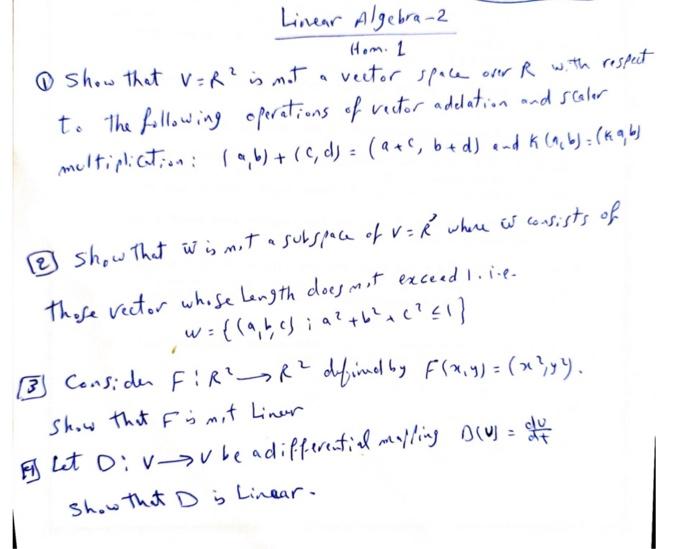 Linear Algebra-2
Hom. 1
① Show that V=R² is not a vector space over R with respect
to the following operations of vector addation and scaler
multiplication: (a,b)+(c,d)=(a+c, b+d) and K(a,b)=(ka,b)
[2] Show that w is not a subspace of V=R³ where w consists of
those vector whose Length does not exceed 1. i.e.
w={(a,b,c); a²+b²+c²≤1}
[3] Consider F:R²→R² defined by F(x,y)=(x²,y²).
Show that F is not Liner
[4] Let D: V→V be a differential mapping D(U)=dU/dt
Show that D is Linear.